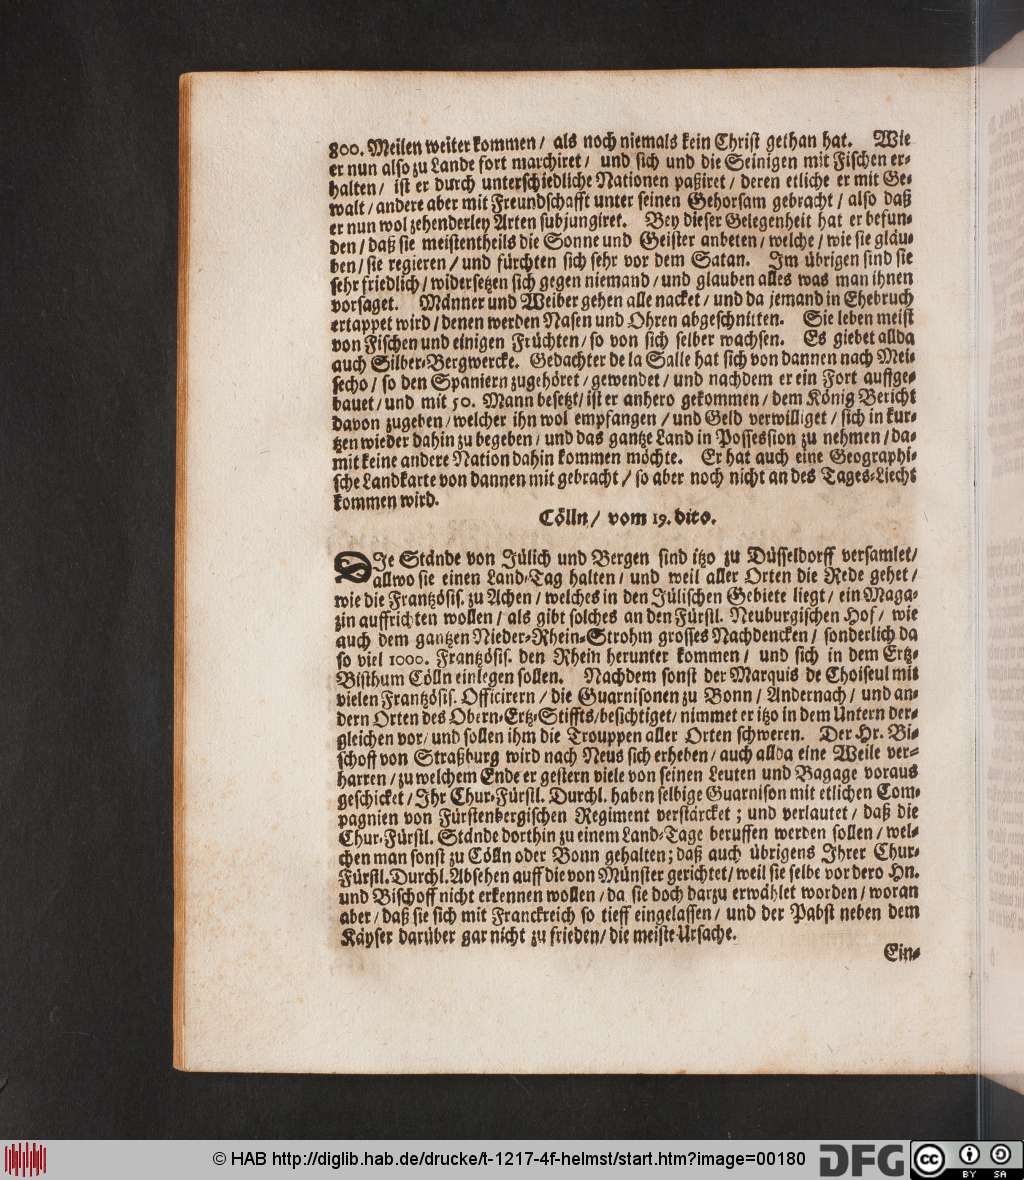 800. Meilen weiter kommen / als noch niemals kein Christ gethan hat. Wie
er nun also zu Lande fort marchiret / und sich und die Seinigen mit Fischen er-
halten / ist er durch unterschiedliche Nationen paßiret / deren etliche er mit Ge-
walt / andere aber mit Freundschafft unter seinen Gehorsam gebracht / also daß
er nun wol zehenderley Arten subjungiret. Bey dieser Gelegenheit hat er befun-
den / daß sie meistentheils die Sonne und Geister anbeten / welche / wie sie gläu-
ben / sie regieren / und fürchten sich sehr vor dem Satan. Im übrigen sind sie
sehr friedlich / widersetzen sich gegen niemand / und glauben alles was man ihnen
vorsaget. Männer und Weiber gehen alle nacket / und da jemand in Ehebruch
ertappet wird / denen werden Nasen und Ohren abgeschnitten. Sie leben meist
von Fischen und einigen Früchten / so von sich selber wachsen. Es giebet allda
auch Silber-Bergwercke. Gedachter de la Salle hat sich von dannen nach Mei-
secho / so den Spaniern zugehöret / gewendet / und nachdem er ein Fort auffge-
bauet / und mit 50. Mann besetzt / ist er anhero gekommen / dem König Bericht
davon zugeben / welcher ihn wol empfangen / und Geld verwilliget / sich in kur-
tzen wieder dahin zu begeben / und das gantze Land in Possession zu nehmen / da-
mit keine andere Nation dahin kommen möchte. Er hat auch eine Geographi-
sche Landkarte von dannen mit gebracht / so aber noch nicht an des Tages-Liecht
kommen wird.
Cölln / vom 19. dito.
DIe Stände von Jülich und Bergen sind itzo zu Düsseldorff versamlet /
allwo sie einen Land-Tag halten / und weil aller Orten die Rede gehet /
wie die Frantzösis. zu Achen / welches in den Jülischen Gebiete liegt / ein Maga-
zin auffrichten wollen / als gibt solches an den Fürstl. Neuburgischen Hof / wie
auch dem gantzen Nieder-Rhein-Strohm grosses Nachdencken / sonderlich da
so viel 1000. Frantzösis. den Rhein herunter kommen / und sich in dem Ertz-
Bisthum Cölln einlegen sollen. Nachdem sonst der Marquis de Choiseul mit
vielen Frantzösis. Officirern / die Guarnisonen zu Bonn / Andernach / und an-
dern Orten des Obern-Ertz-Stiffts / besichtiget / nimmet er itzo in dem Untern der-
gleichen vor / und sollen ihm die Trouppen aller Orten schweren. Der Hr. Bi-
schoff von Straßburg wird nach Neus sich erheben / auch allda eine Weile ver-
harren / zu welchem Ende er gestern viele von seinen Leuten und Bagage voraus
geschicket / Ihr Chur-Fürstl. Durchl. haben selbige Guarnison mit etlichen Com-
pagnien von Fürstenbergischen Regiment verstärcket ; und verlautet / daß die
Chur-Fürstl. Stände dorthin zu einem Land-Tage beruffen werden sollen / wel-
chen man sonst zu Cölln oder Bonn gehalten ; daß auch übrigens Ihrer Chur-
Fürstl. Durchl. Absehen auff die von Münster gerichtet / weil sie selbe vor dero Hn.
und Bischoff nicht erkennen wollen / da sie doch darzu erwählet worden / woran
aber / daß sie sich mit Franckreich so tieff eingelassen / und der Pabst neben dem
Käyser darüber gar nicht zu frieden / die meiste Ursache.
Ein-
© HAB http://diglib.hab.de/drucke/t-1217-4f-helmst/start.htm?image=00180
DFG
cc
BY SA